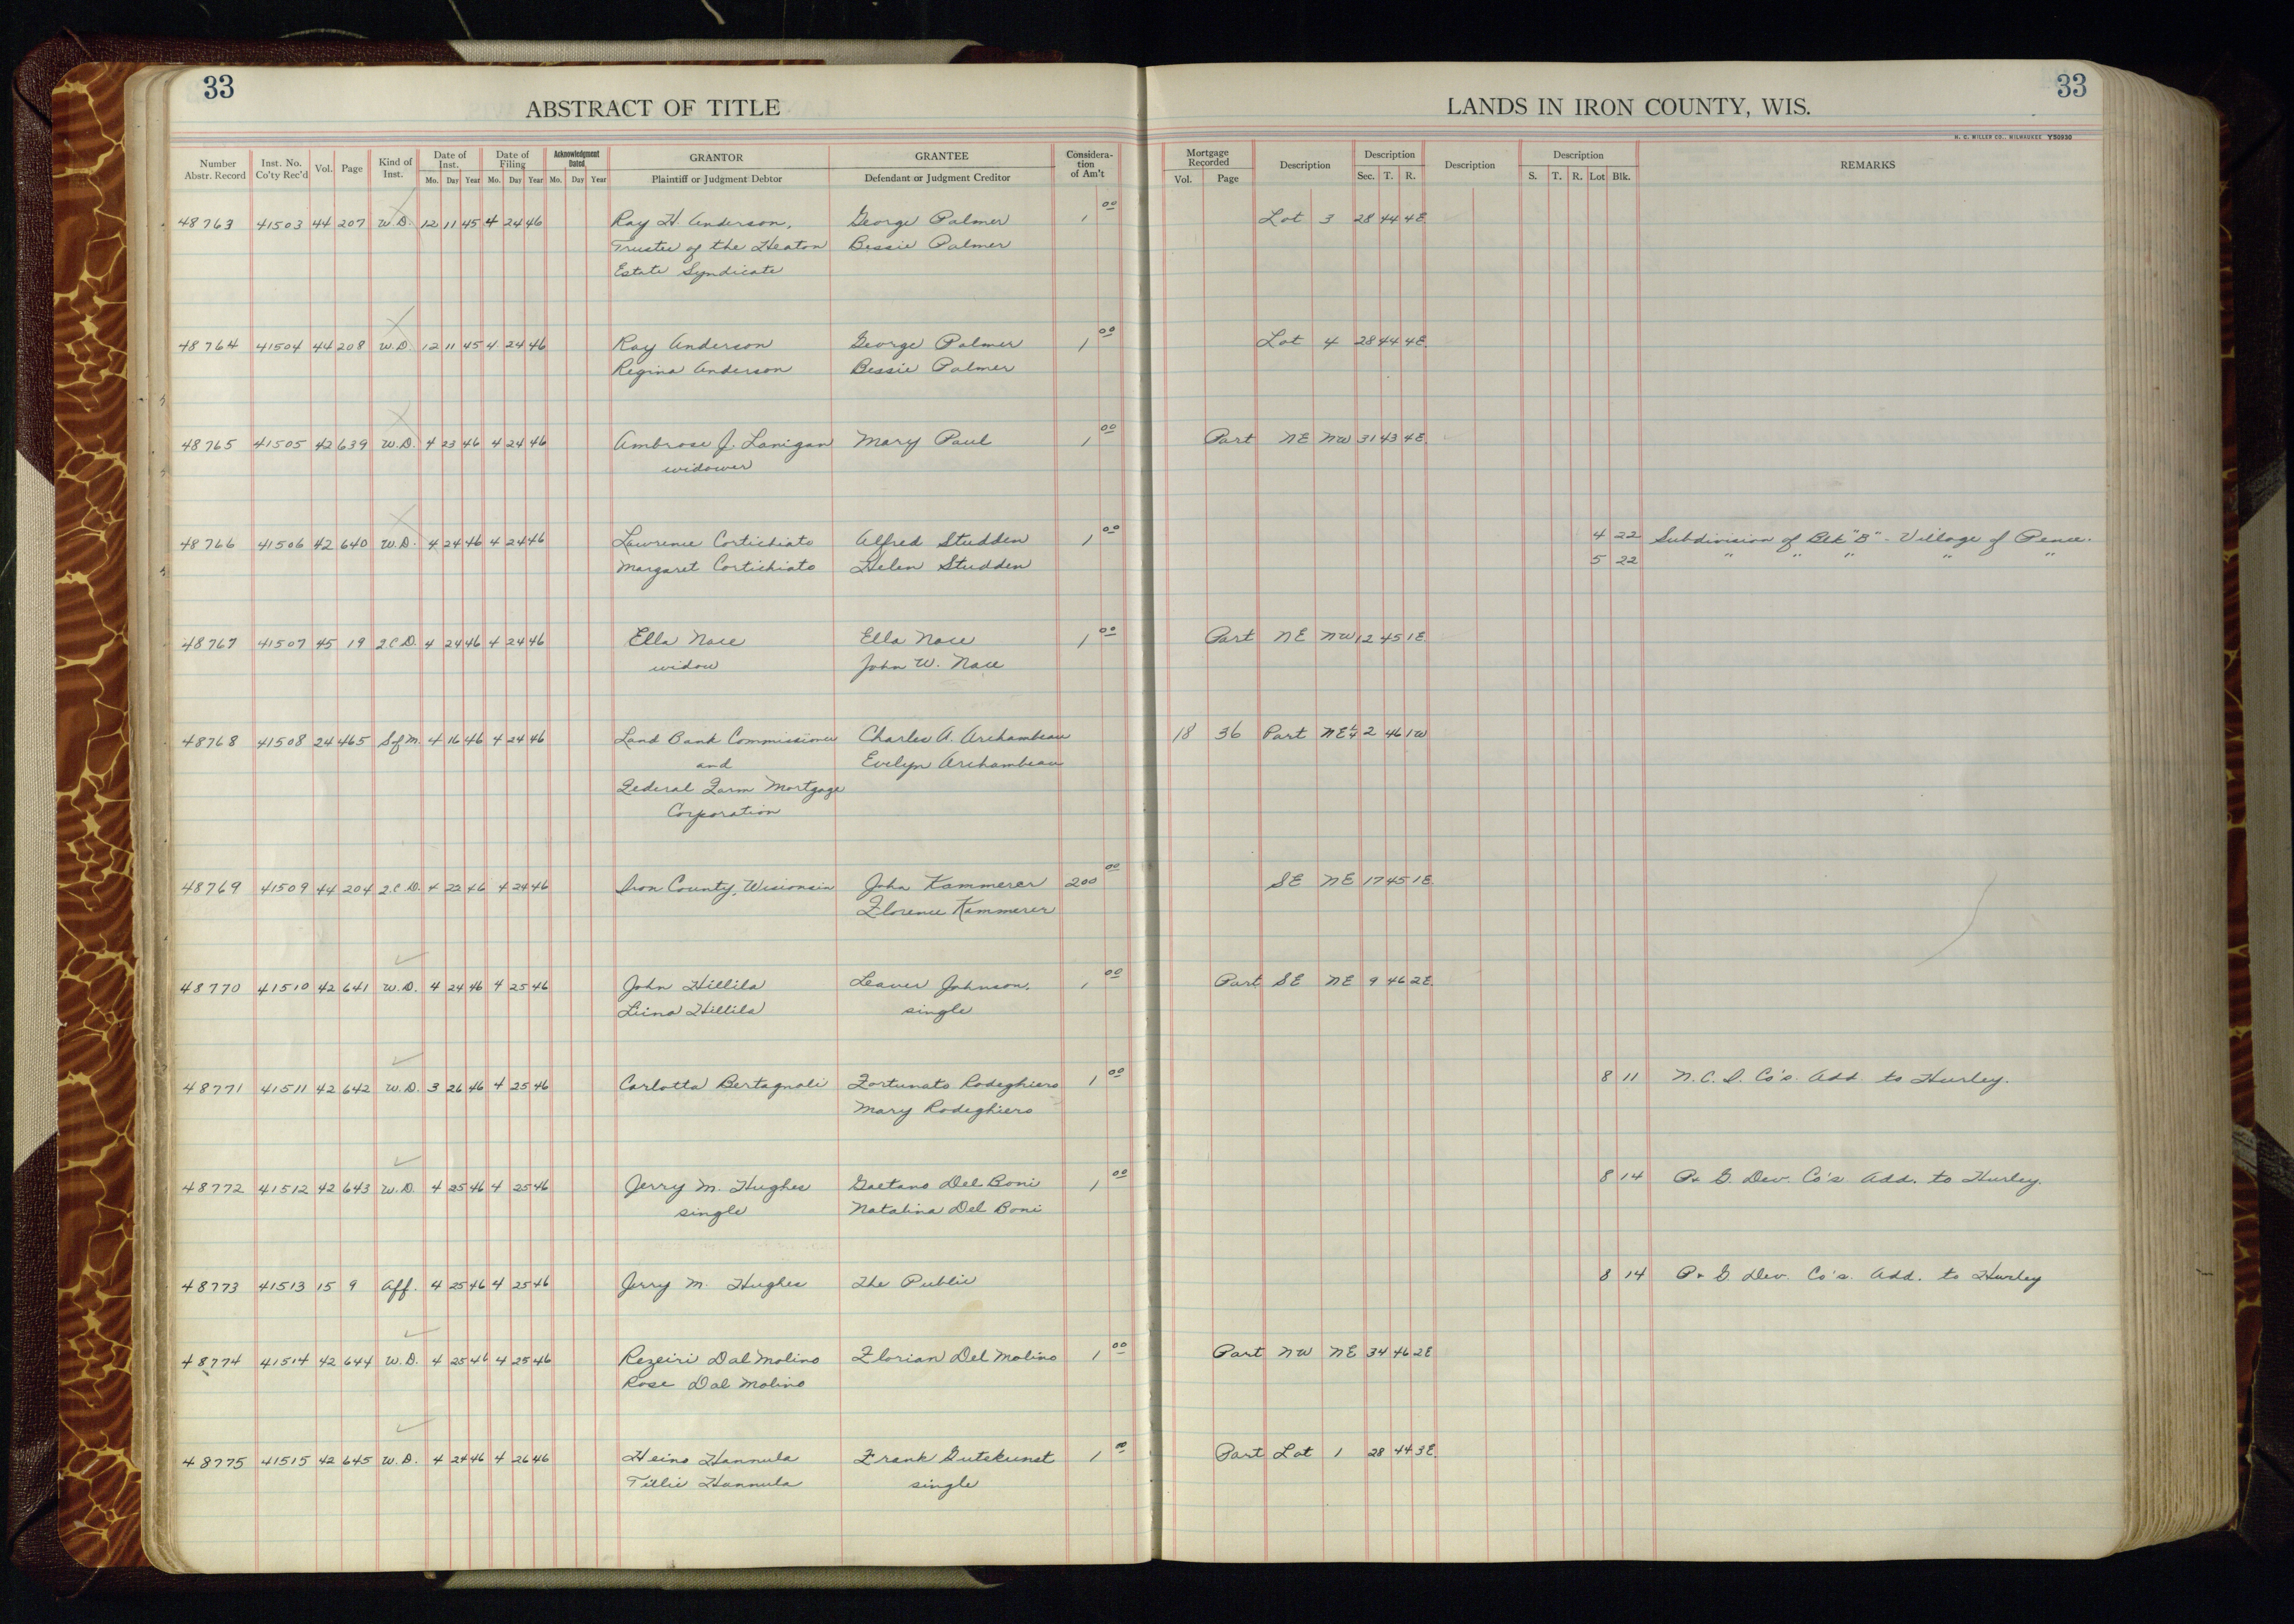 33
ABSTRACT OF TITLE
LANDS IN IRON COUNTY, WIS.
33
H. C. MILLER CO., MILWAUKEE Y50930
Number Abstr. Record Inst. No. Co'ty Rec'd Vol. Page Kind of Inst. Date of Inst. Mo. Day Year Date of Filing Mo. Day Year Acknowledgment Dated Mo. Day Year GRANTOR Plaintiff or Judgment Debtor GRANTEE Defendant or Judgment Creditor Consideration of Am't Mortgage Recorded Vol. Page Description Description Sec. T. R. Description Description S. T. R. Lot Blk. REMARKS
48763 41503 44 207 W.D. 12 11 45 4 24 46 Ray H. Anderson, George Palmer 1 00 Lot 3 28 44 4E
Trustee of the Heaton Bessie Palmer
Estate Syndicate
48764 41504 44 208 W.D. 12 11 45 4 24 46 Ray Anderson George Palmer 1 00 Lot 4 28 44 4E
Regina Anderson Bessie Palmer
48765 41505 42 639 W.D. 4 23 46 4 24 46 Ambrose J. Lanigan Mary Paul 1 00 Part NE NW 31 43 4E
widower
48766 41506 42 640 W.D. 4 24 46 4 24 46 Lawrence Cortichiato Alfred Studden 1 00 4 22 Subdivision of Blk "B" - Village of Pence.
Margaret Cortichiato Helen Studden 5 22 " " " " "
48767 41507 45 19 2.C.D. 4 24 46 4 24 46 Ella Nace Ella Nace 1 00 Part NE NW 12 45 1E
widow John W. Nace
48768 41508 24 465 Sf M. 4 16 46 4 24 46 Land Bank Commissioner Charles A. Archambeau 18 36 Part NE¼ 2 46 1W
and Evelyn Archambeau
Federal Farm Mortgage
Corporation
48769 41509 44 204 2.C.D. 4 22 46 4 24 46 Iron County, Wisconsin John Kammerer 200 00 SE NE 17 45 1E
Florence Kammerer
48770 41510 42 641 W.D. 4 24 46 4 25 46 John Hillila Leaver Johnson, 1 00 Part SE NE 9 46 2E
Liina Hillila single
48771 41511 42 642 W.D. 3 26 46 4 25 46 Carlotta Bertagnoli Fortunato Rodeghiero 1 00 8 11 N.C.I. Co's. Add. to Hurley.
Mary Rodeghiero
48772 41512 42 643 W.D. 4 25 46 4 25 46 Jerry M. Hughes Gaetano Del Boni 1 00 8 14 P+ G. Dev. Co's Add. to Hurley.
single Natalina Del Boni
48773 41513 15 9 Aff. 4 25 46 4 25 46 Jerry M. Hughes The Public 8 14 P+ G. Dev. Co's. Add. to Hurley
48774 41514 42 644 W.D. 4 25 46 4 25 46 Rezeiri Dal Molino Florian Del Molino 1 00 Part NW NE 34 46 2E
Rose Dal Molino
48775 41515 42 645 W.D. 4 24 46 4 26 46 Heino Hannula Frank Gutekunst 1 00 Part Lot 1 28 44 3E
Tillie Hannula single